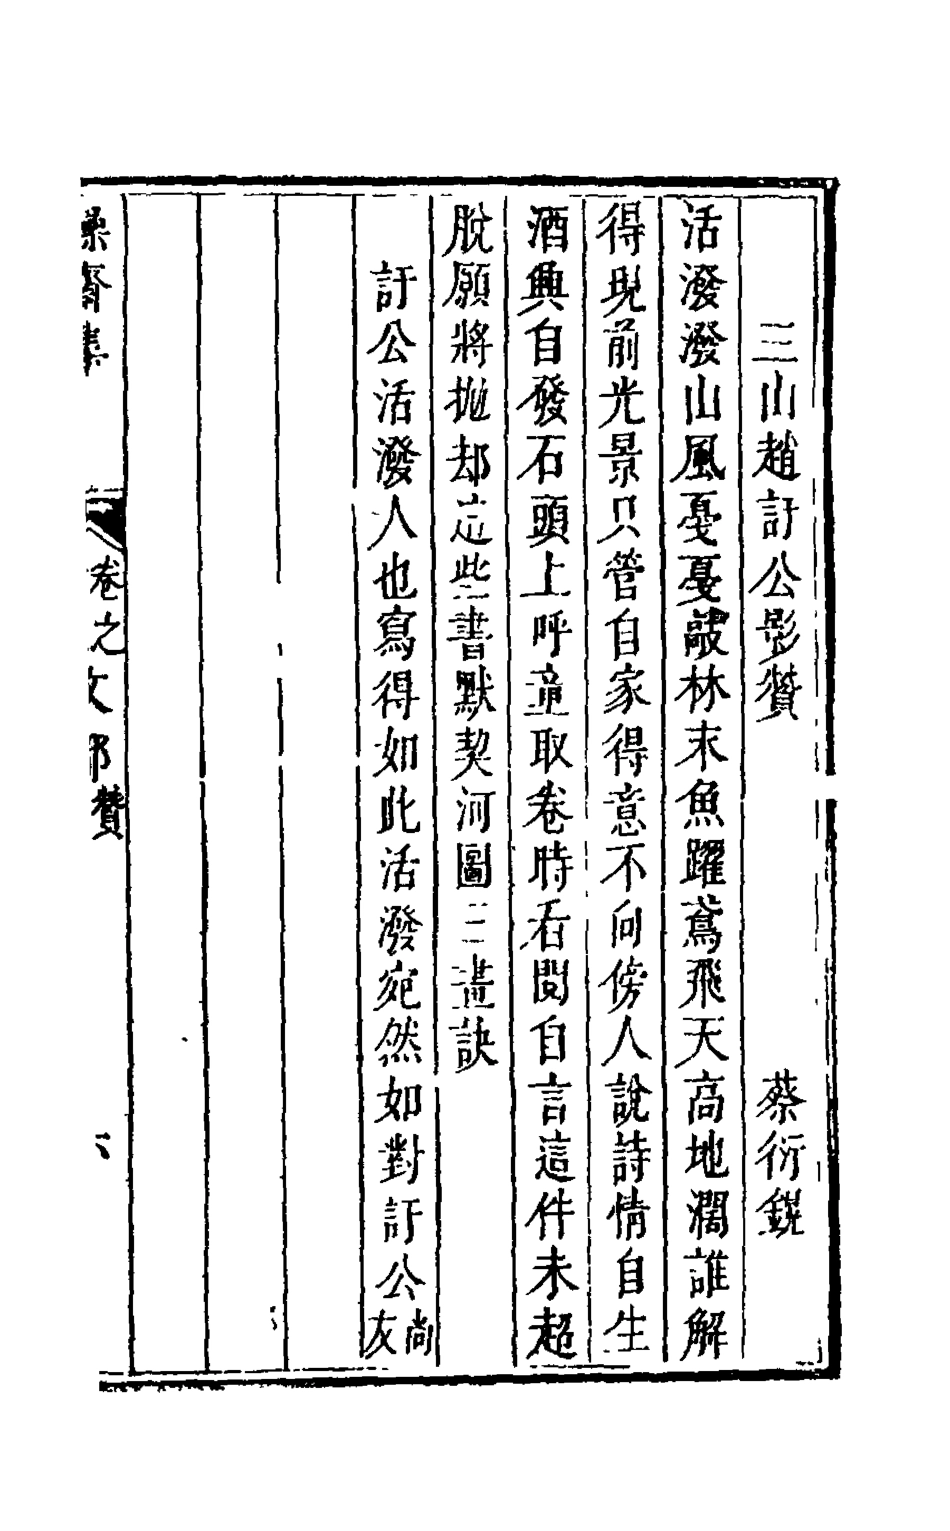 三山趙訏公影贊 蔡衍鎤
活潑潑山風戞戞敲林末魚躍鳶飛天高地濶誰解
得現前光景只管自家得意不向傍人說詩情自生
酒興自發石頭上呼童取卷時看閱自言這件未超
脫願將拋却這些書默契河圖三畫訣
訏公活潑人也寫得如此活潑宛然如對訏公尚友
操齋集 卷之 文部 贊 六